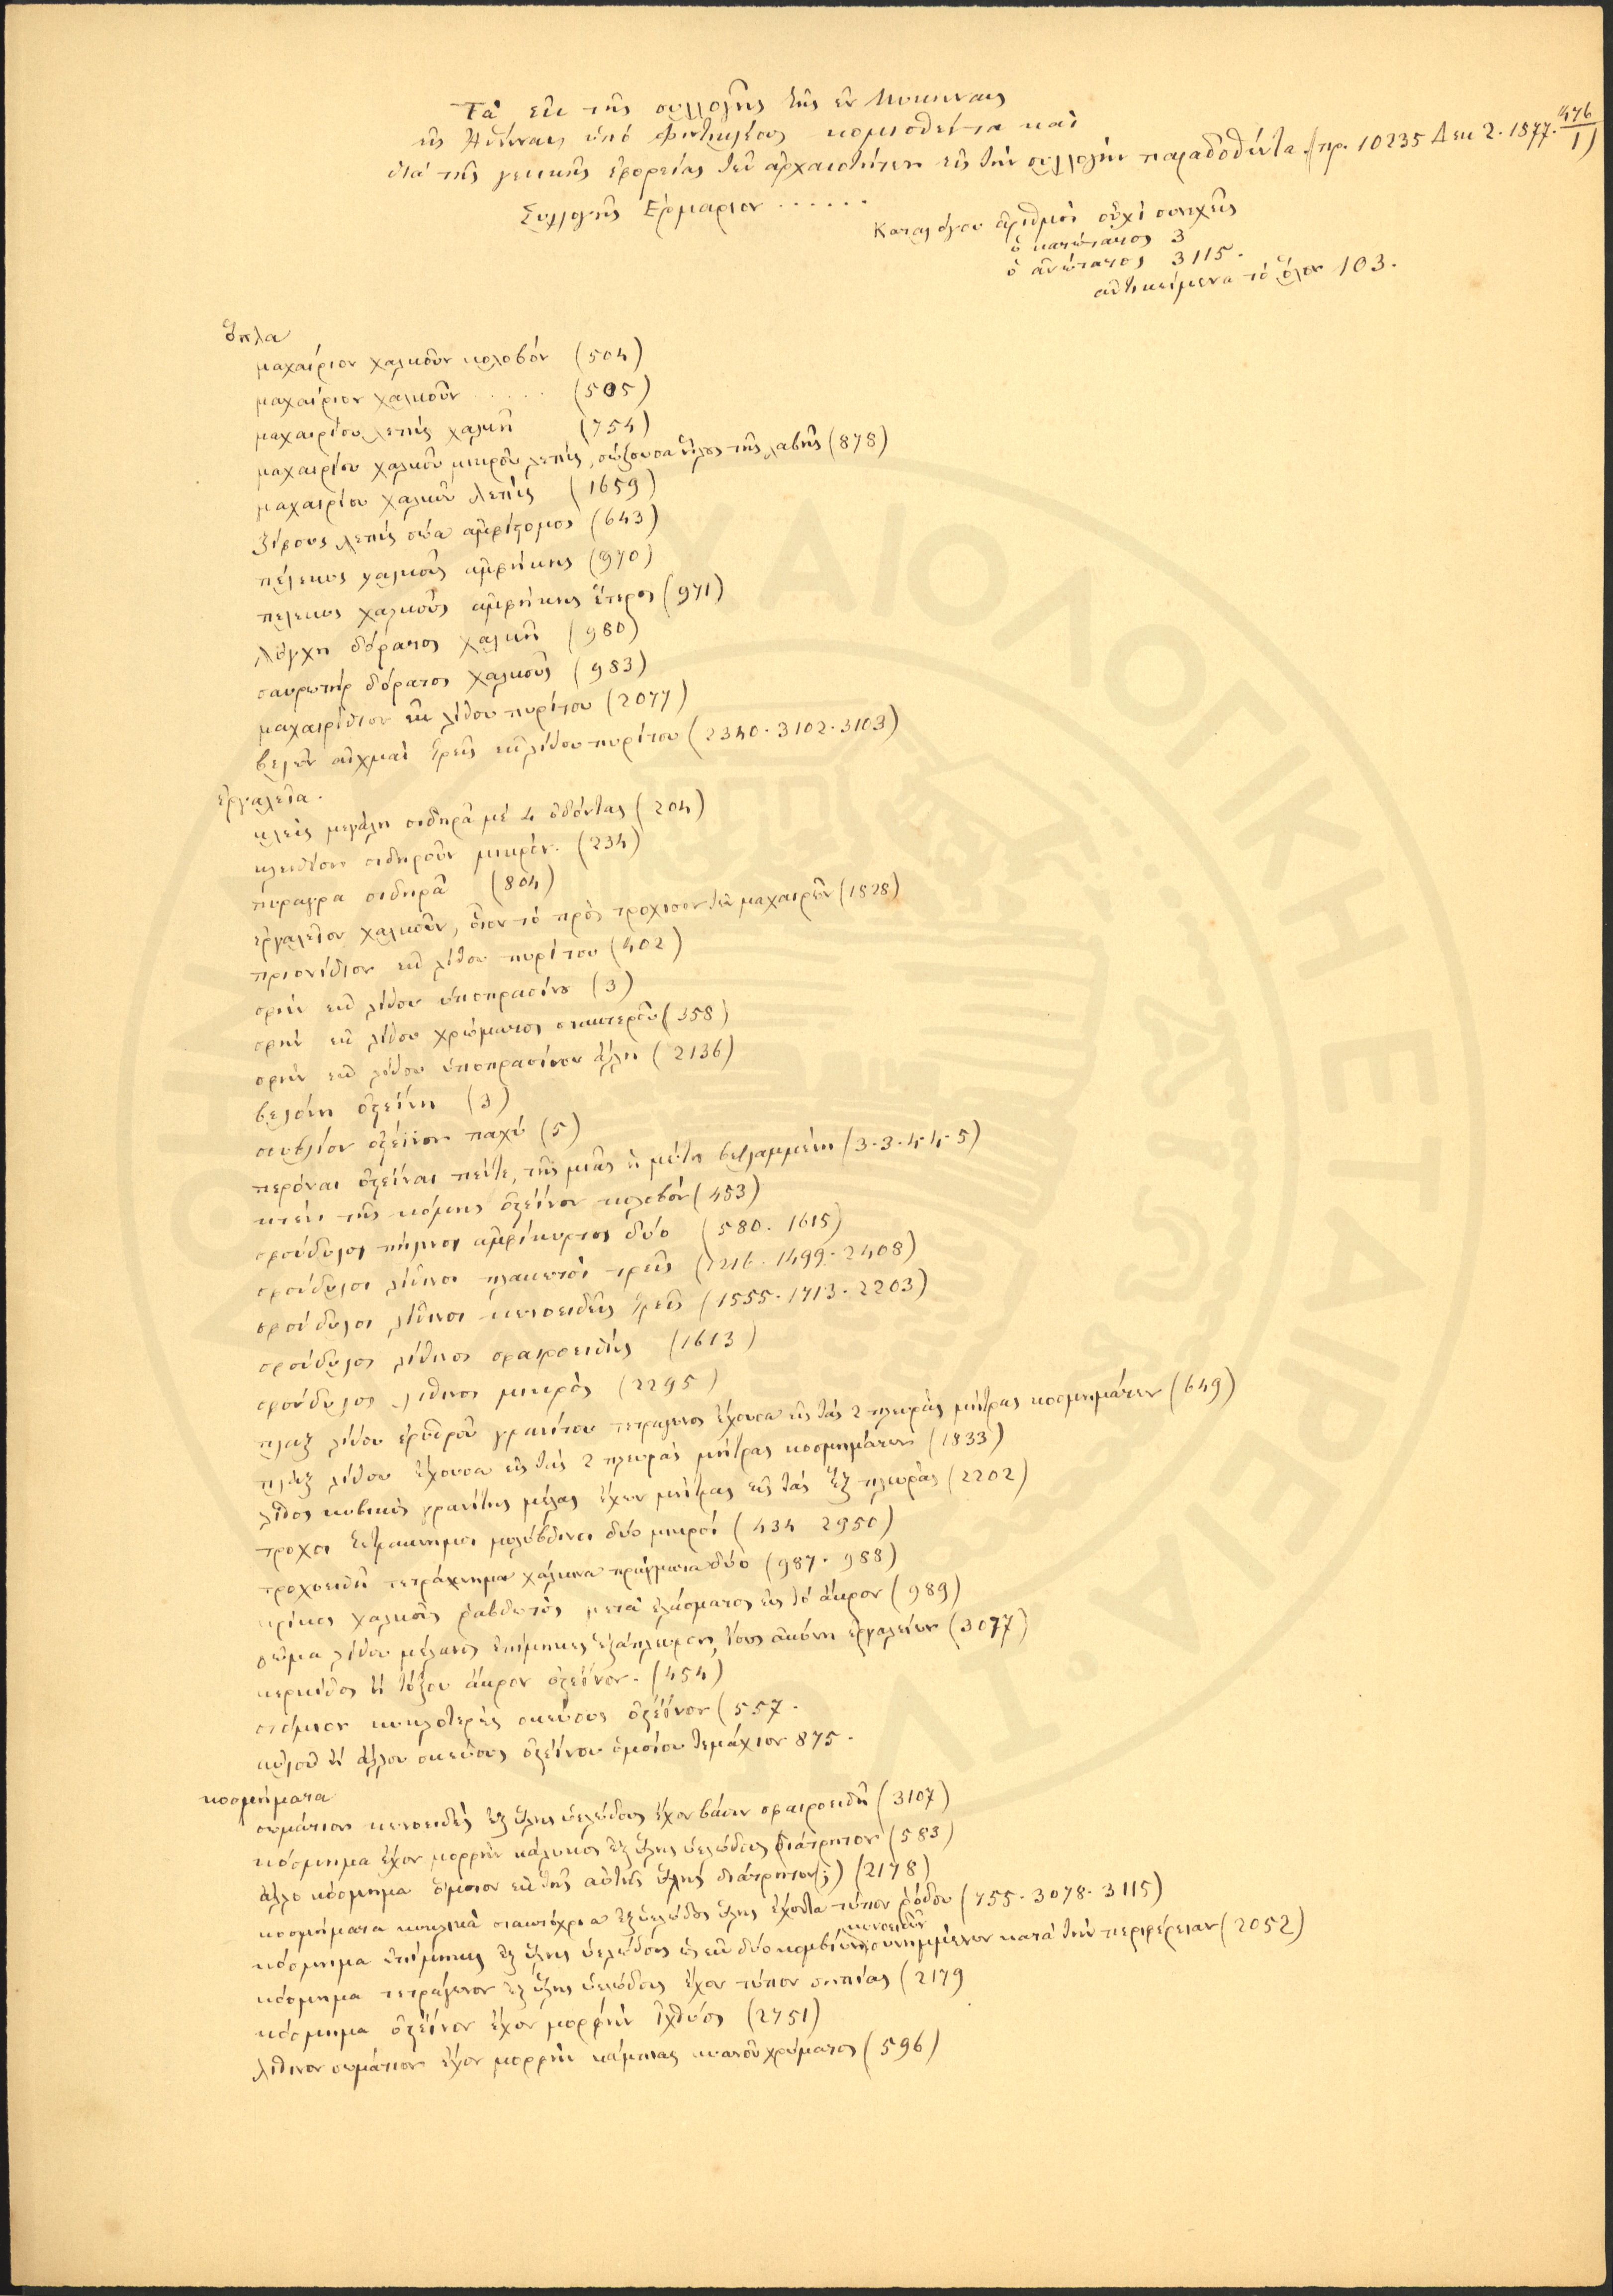 Τὰ ἐκ τῆς συλλογῆς τῆς ἐν Μυκήναις
εἰς Ἀθήνας ὑπὸ Φιντικλέους κομισθέντα καὶ
διὰ τῆς γενικῆς ἐφορείας τῶν ἀρχαιοτήτων εἰς τὴν συλλογὴν παραδοθέντα. (πρ. 10235 Δεκ 2. 1877. 476/1)
Συλλογῆς Ἑρμάριον ......
Καταλόγου ἀριθμοὶ οὐχὶ συνεχεῖς
ὁ κατώτατος 3
ὁ ἀνώτατος 3115.
ἀντικείμενα τὸ ὅλον 103.
ὅπλα
μαχαίριον χαλκοῦν κολοβόν (504)
μαχαίριον χαλκοῦν ..... (505)
μαχαιρίου λεπὶς χαλκῆ (754)
μαχαιρίου χαλκοῦ μικροῦ λεπίς, σώζουσα ἧλος τῆς λαβῆς (878)
μαχαιρίου χαλκοῦ λεπίς (1659)
ξίφους λεπὶς σώα ἀμφίτομος (643)
πέλεκυς χαλκοῦς ἀμφήκης (970)
πέλεκυς χαλκοῦς ἀμφήκης ἕτερος (971)
λόγχη δόρατος χαλκῆ (980)
σαυρωτὴρ δόρατος χαλκοῦς (983)
μαχαιρίδιον ἐκ λίθου πυρίτου (2077)
βελῶν αἰχμαὶ τρεῖς ἐκ λίθου πυρίτου (2340. 3102. 3103)
ἐργαλεῖα.
κλεὶς μεγάλη σιδηρᾶ μὲ 4 ὀδόντας (204)
κλειδίον σιδηροῦν μικρόν. (234)
πυράγρα σιδηρᾶ (804)
ἐργαλεῖον χαλκοῦν, οἷον τὸ πρὸς τρόχισον τῶν μαχαιρῶν (1828)
πριονίδιον ἐκ λίθου πυρίτου (402)
σφὴν ἐκ λίθου ὑποπρασίνου (3)
σφὴν ἐκ λίθου χρώματος στακτεροῦ (358)
σφὴν ἐκ λίθου ὑποπρασίνου ἄλλη (2136)
βελόνη ὀστεΐνη (3)
σουβλίον ὀστέϊνον παχύ (5)
περόναι ὀστέϊναι πέντε, τῆς μιᾶς ἡ μύτη βεβλαμμένη (3. 3. 4. 4. 5)
κτένι τῆς κόμης ὀστέϊνον κολοβόν (453)
σφόνδυλοι πήλινοι ἀμφίκυρτοι δύο (580. 1615)
σφόνδυλοι λίθινοι πλακωτοὶ τρεῖς (1216. 1499. 2408)
σφόνδυλοι λίθινοι κωνοειδεῖς τρεῖς (1555. 1713. 2203)
σφόνδυλος λίθινος σφαιροειδής (1613)
σφόνδυλος λίθινος μικρός (2295)
πλὰξ λίθου ἐρυθροῦ γρανίτου τετράγωνος ἔχουσα εἰς τὰς 2 πλευρὰς μήτρας κοσμημάτων (649)
πλὰξ λίθου ἔχουσα εἰς τὰς 2 πλευρὰς μήτρας κοσμημάτων (1833)
λίθος κυβικὸς γρανίτης μέλας ἔχων μήτρας εἰς τὰς ἓξ πλευράς (2202)
τροχοὶ τετράκνημοι μολύβδινοι δύο μικροί (434 2950)
τροχοειδῆ τετράκνημα χάλκινα πράγματα δύο (987. 988)
κρίκος χαλκοῦς ῥαβδωτός, μετὰ ἐλάσματος εἰς τὸ ἄκρον (989)
σῶμα λίθου μέλανος ἐπίμηκες ἑξάπλευρον, ἴσως ἀκόνη ἐργαλείων (3077)
κερκίδος ἢ τόξου ἄκρον ὀστέϊνον. (454)
στόμιον κυκλοτερὲς σκεύους ὀστέϊνον (557.
αὐλοῦ ἢ ἄλλου σκεύους ὀστεΐνου ὁμοίου τεμάχιον 875.
κοσμήματα
σωμάτιον κωνοειδὲς ἐξ ὕλης ὑελώδους ἔχον βάσιν σφαιροειδῆ (3107)
κόσμημα ἔχον μορφὴν κάλυκος ἐξ ὕλης ὑελώδους διάτρητον (583)
ἄλλο κόσμημα ὅμοιον ἐκ τῆς αὐτῆς ὕλης διάτρητον(;) (2178)
κοσμήματα κυκλικὰ στακτόχροα ἐξ ὑελώδους ὕλης ἔχοντα τύπον ῥόδου (755. 3078. 3115)
κόσμημα ἐπίμηκες ἐξ ὕλης ὑελώδους ὡς ἐκ δύο κομβίων κωνοειδῶν συνημμένων κατὰ τὴν περιφέρειαν (2052)
κόσμημα τετράγωνον ἐξ ὕλης ὑελώδους ἔχον τύπον σηπίας (2179
κόσμημα ὀστέϊνον ἔχον μορφὴν ἰχθύος (2751)
λίθινον σωμάτιον ἔχον μορφὴν κάμπης κυανοῦ χρώματος (596)